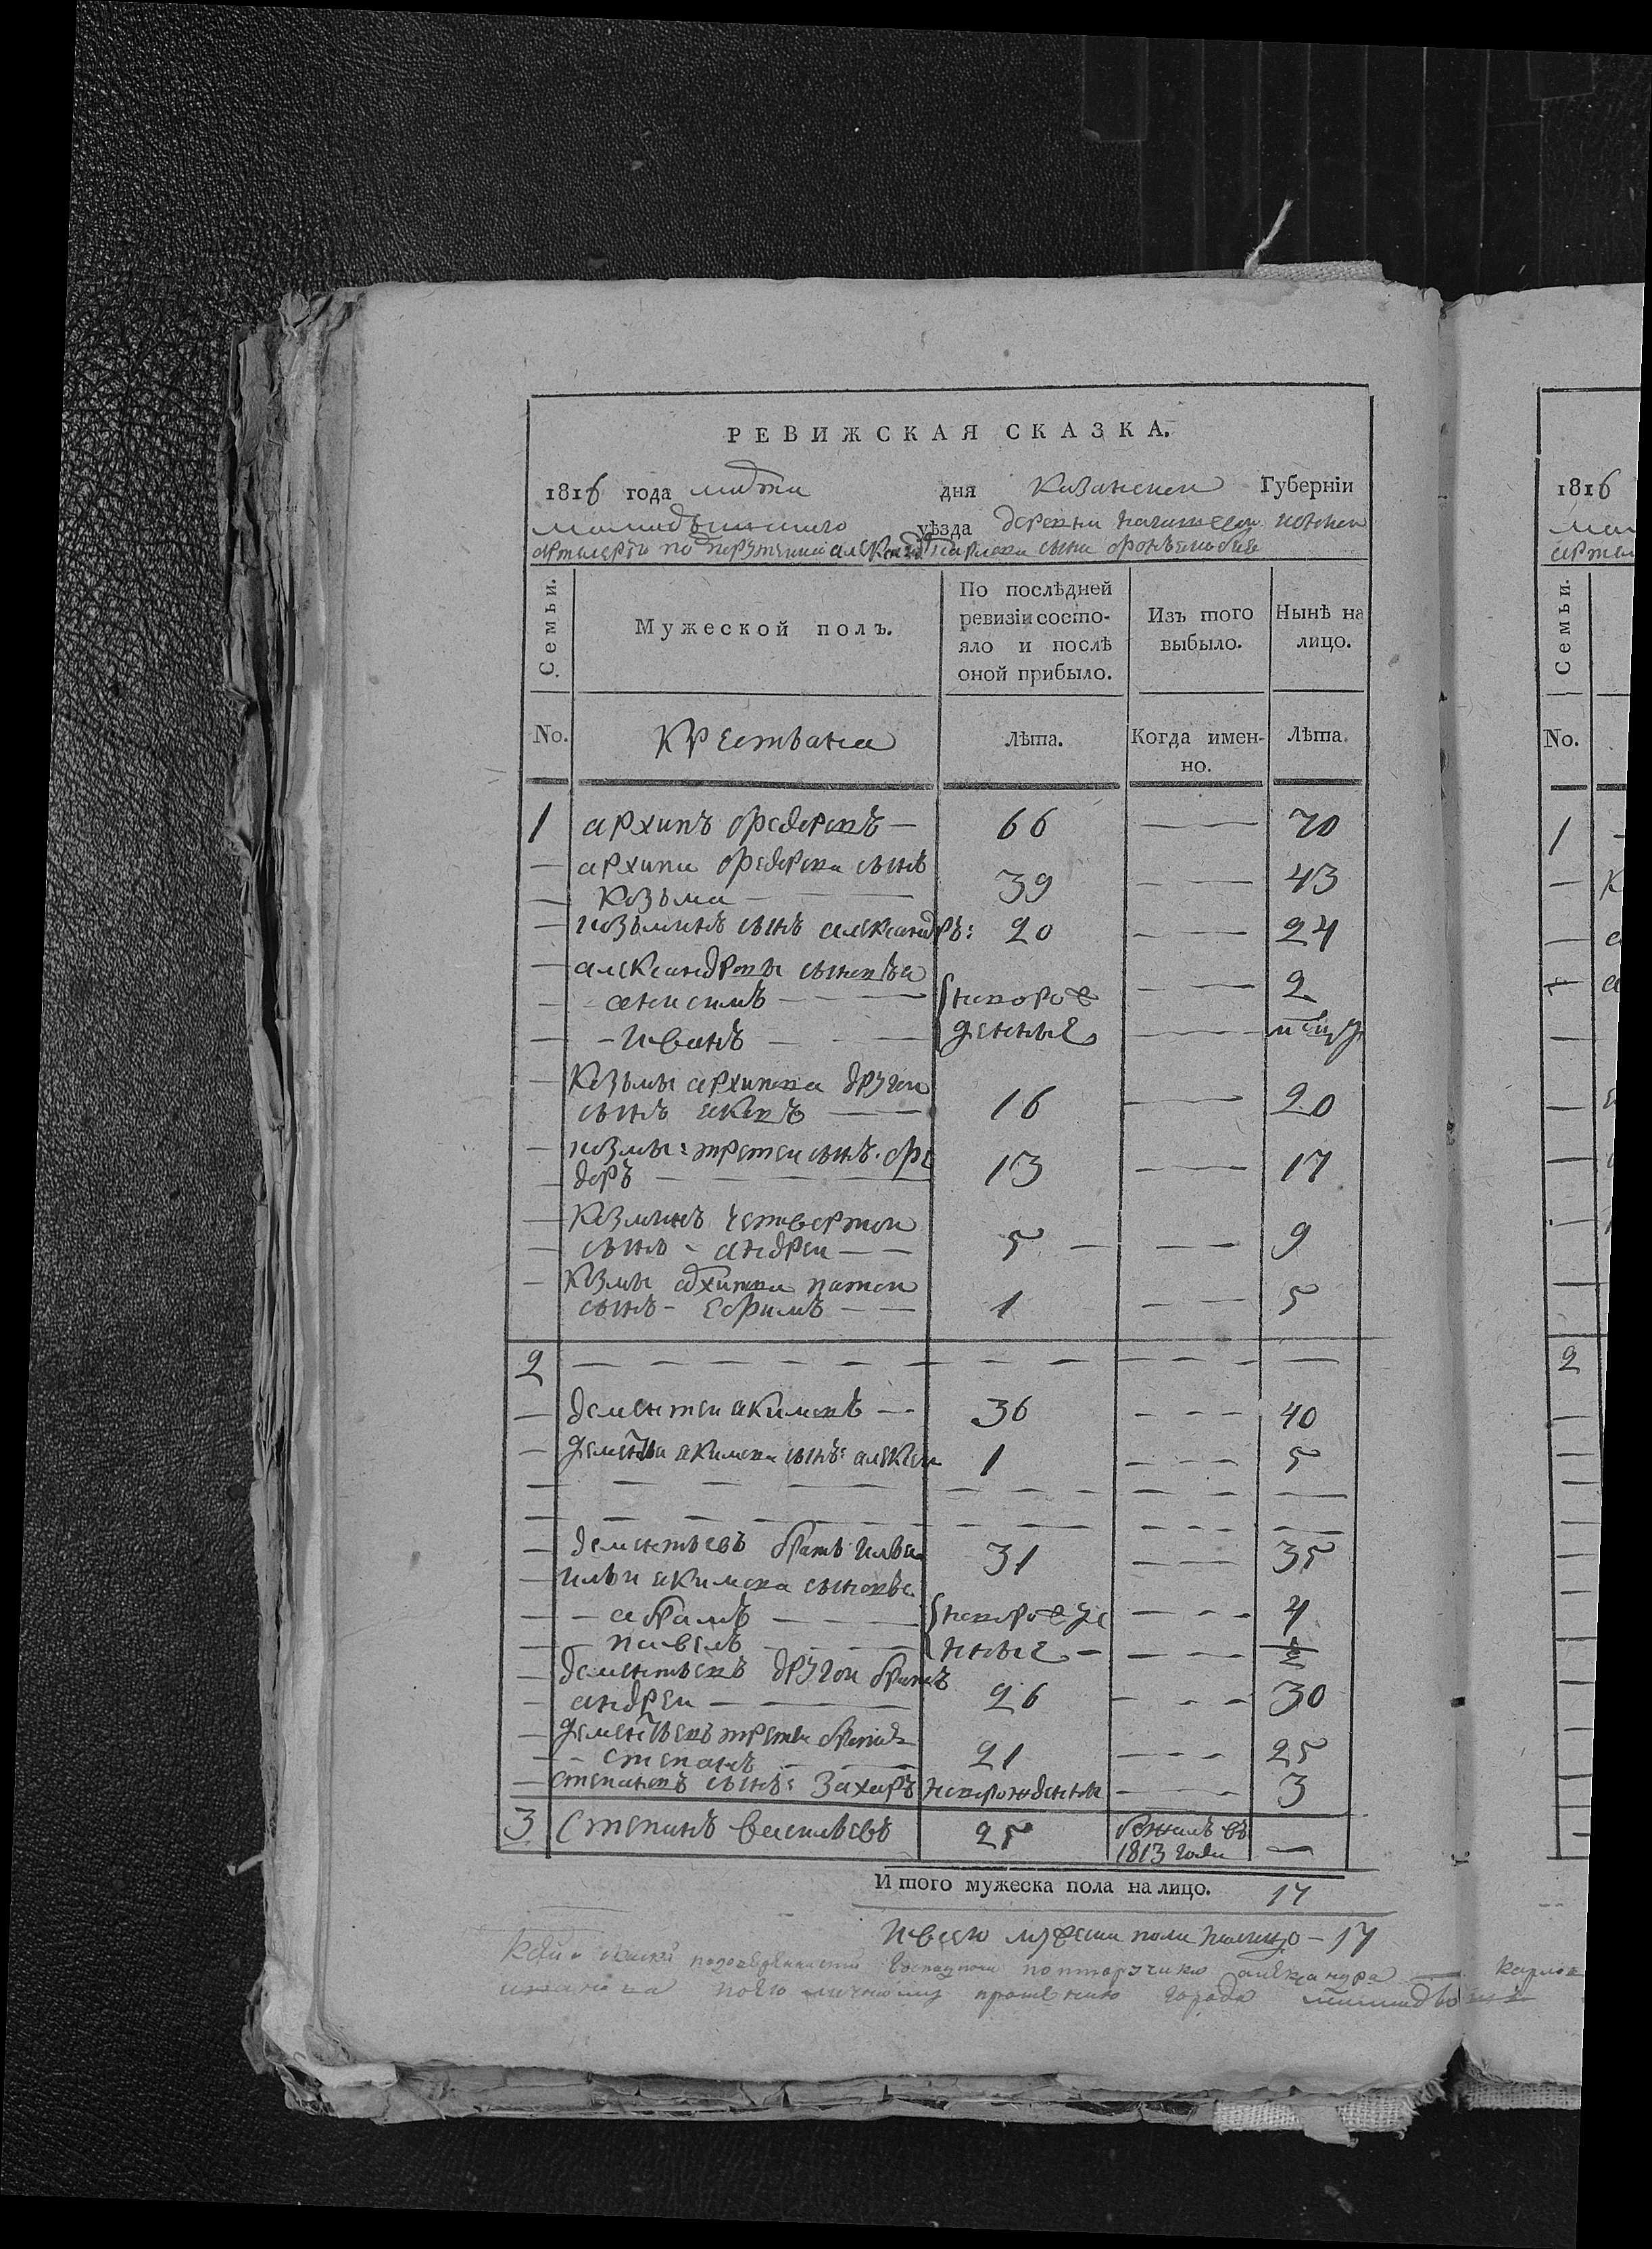 РЕВИЖСКАЯ СКАЗКА.
1816 года марта дня Казанской Губерніи
мамадышскаго уѣзда деревни
артилерiи подпорутчика александра карлова сына
Семьи.
Мужеской полъ.
По послѣдней
ревизіи состо-
яло и послѣ
оной прибыло.
Изъ того
выбыло.
Нынѣ на
лицо.
No. Крестьяня лѣта. Когда имен- лѣта.
но.
1 архипъ федоровъ — 66 — 70
— архипа федорова сынъ
— Козьма — 39 — 43
— козьминъ сынъ александръ: 20 — 24
— александровы сыновья
— анисимъ — новорож 2
— иванъ — денные
— Козьмы архипова другои
сынъ яковъ — 16 — 20
— козмы: третеи сынъ фе
— доръ — 13 — 17
— Козминъ четвертои
— сынъ - андреи — 5 — 9
— Козмы архипова пятои
сынъ - Ефимъ — 1 — 5
2
— дементеи якимовъ — 36 — 40
— дементья якимова сынъ: алексеи 1 — 5
— дементьевъ братъ илья 31 — 35
— ильи якимова сыновья
— абрамъ — новорожде — 4
— павелъ — нные —
— дементьевъ другои братъ
— андреи — 26 — 30
— дементьевъ третеи братъ
— степанъ — 21 — 25
— степановъ сынъ: Захаръ новорожденнои — 3
3 Степанъ васильевъ 25 бежалъ въ
1813 года —
Итого мужеска пола на лицо. 17
ивсего мужеска пола налицо — 17
александра карлов
прошению города
1816
Семьи.
No.
1
2